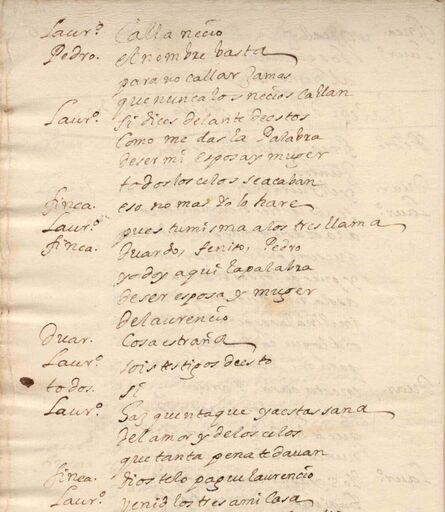 Laurº. Calla necio
Pedro. el nombre basta
para no callar Jamas
que nunca los necios callan
Laurº. si dices delante destos
como me das la Palabra
de ser mi esposa y muger
todos los celos se acaban
finea. eso no mas Yo lo hare
Laurº. pues tu misma a los tres llama
finea. Duardo, feniso, Pedro
yo doy aqui la palabra
de ser esposa y muger
de laurencio
Duar. Cosa estraña
Laurº. sois testigos desto
todos. si
Laurº. Haz quenta que ya estas sana
del amor y de los celos
que tanta pena te dauan
finea. dios te lo pague laurencio
Laurº. venid los tres a mi Casa